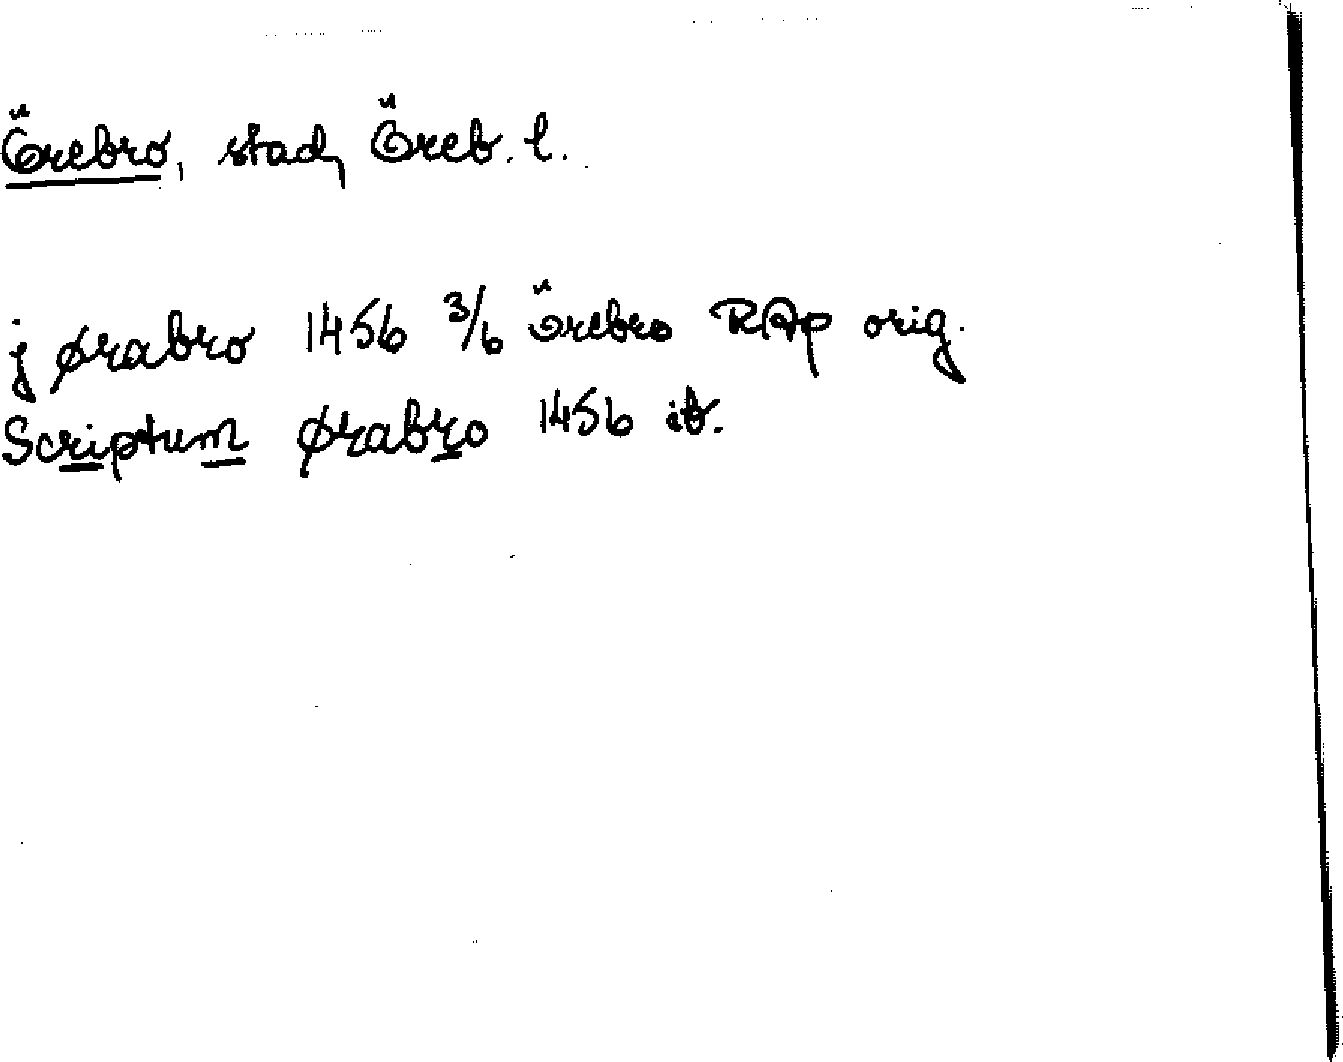 Örebro, stad, Öreb. l.
j ørabro 1456 3/6 Örebro RAp orig.
Scriptum ørabro 1456 ib.